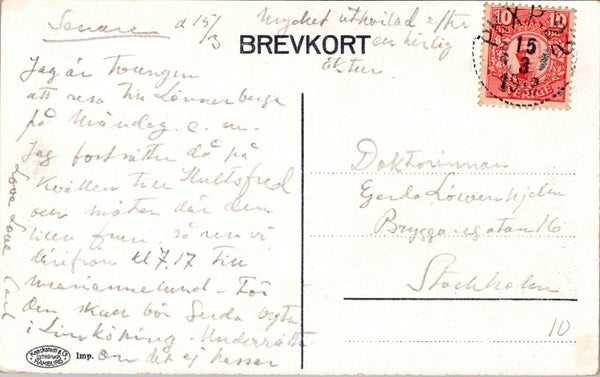 Senare d 15/3
Mycket uthvilad efter
en härlig
BREVKORT
Jag är tvungen
att resa till Lönneberga
på Måndag e. m.
Jag fortsätter då på
kvällen till Hultsfred
och möter där den
lilla frun, så resa vi
därifrån kl 7.17 till
Mariannelund – För
den skull bör Gerda
i Linköping. Underrätta
om det ej passar
Love Love Carl
Doktorinnan
Gerda Löwenhjelm
Bryggaregatan 16
Stockholm
10
10 10
SVERIGE
PKXP
15
3
Knackstedt & Co
LICHTDRUCK
HAMBURG
Imp.